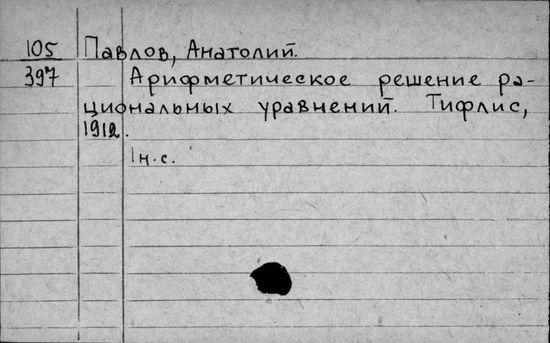 105 Павлов, Анатолий.
397 Арифметическое решение ра-
циональных уравнений. Тифлис,
1912.
1 н.с.